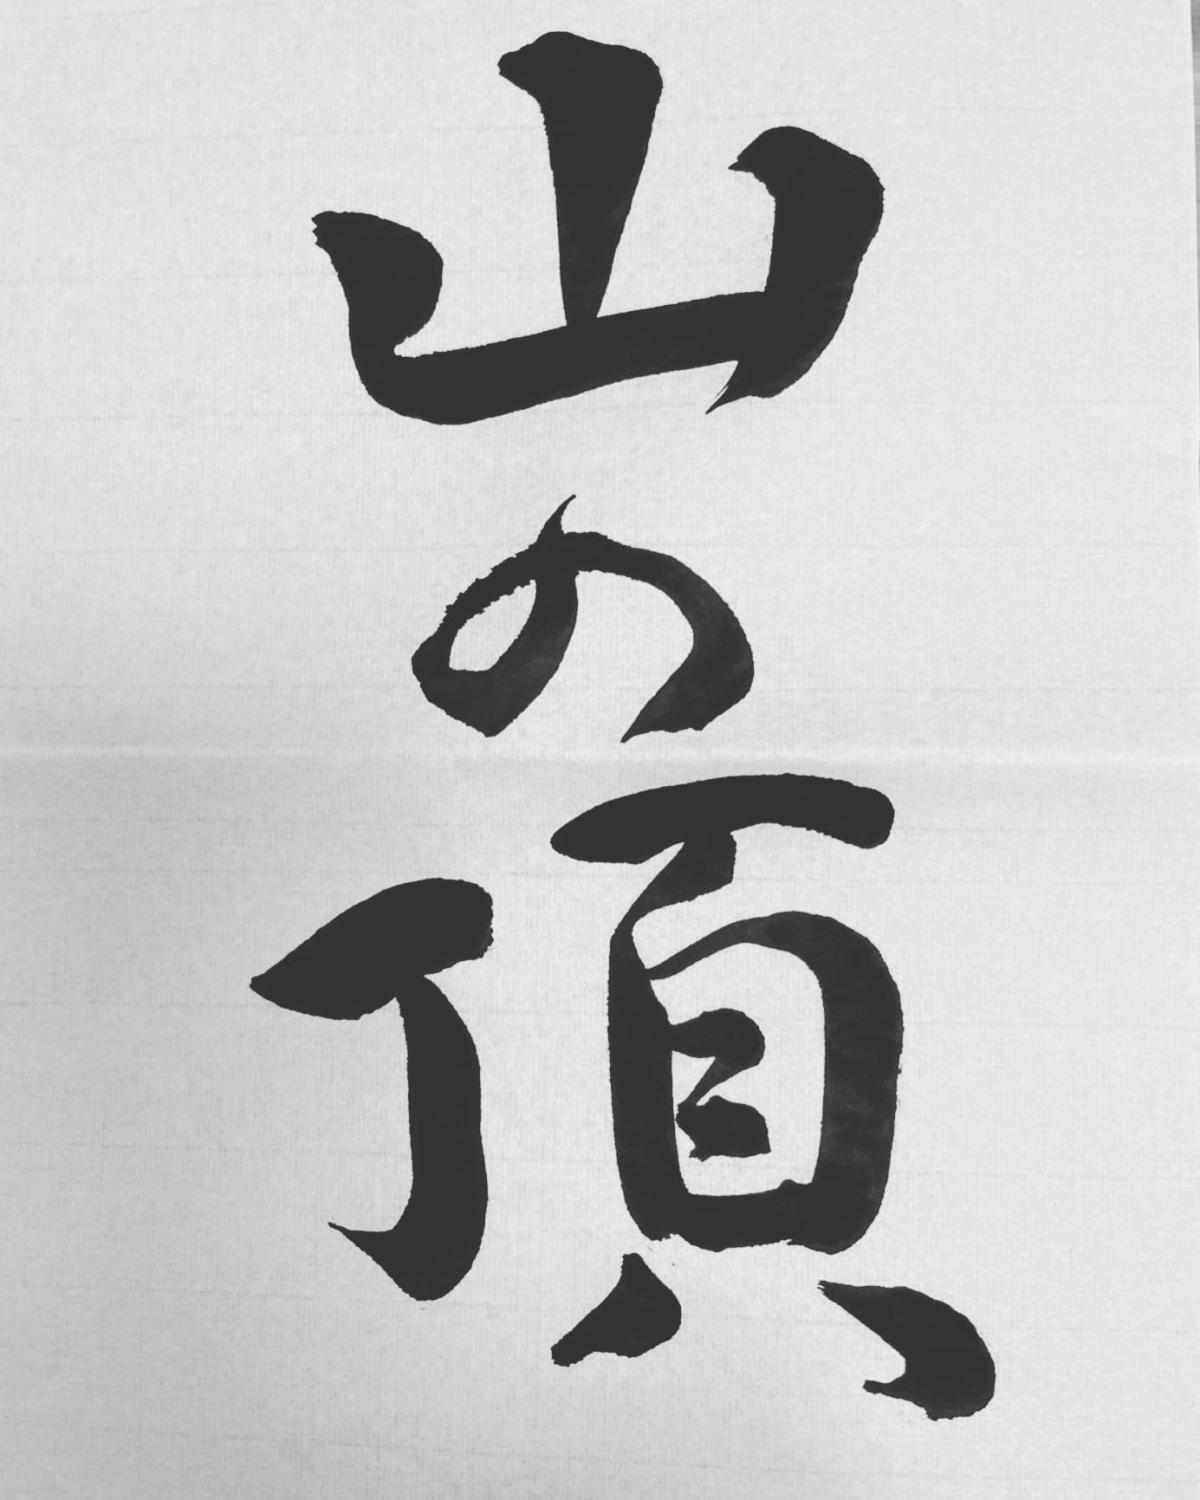 山の頂